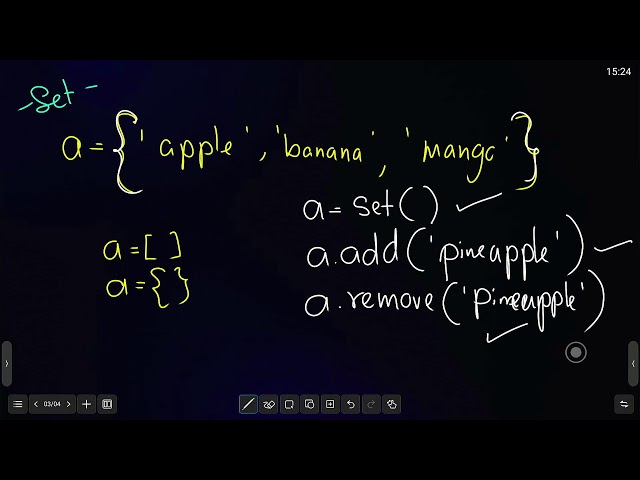 15:24
-Set-
a = {'apple', 'banana', 'mango'}
a = set()
a = [ ]
a.add('pineapple')
a = { }
a.remove('pineapple')
03/04